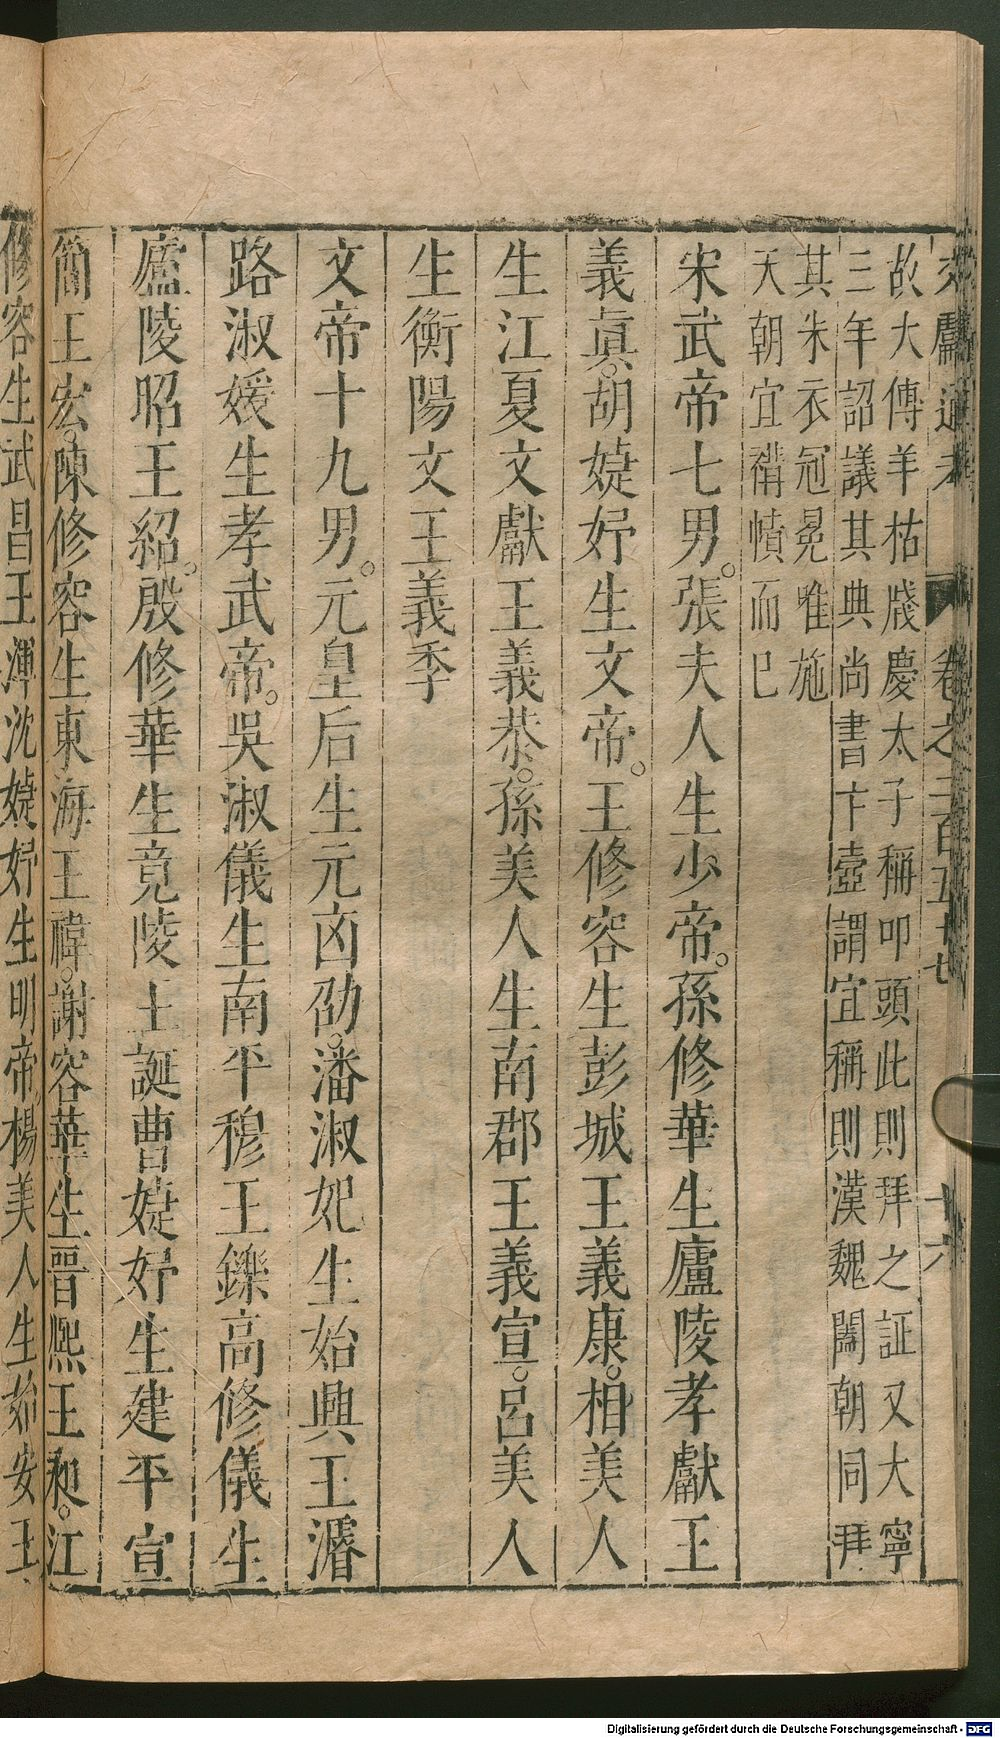 文獻通考 卷之二百五十七 十六
故大傅羊枯牋慶太子稱叩頭此則拜之証又大寧
三年詔議其典尚書卞壼謂宜稱則漢魏闔朝同拜
其朱衣冠冕唯施
天朝宜褠幘而已
宋武帝七男。張夫人生少帝。孫修華生廬陵孝獻王
義眞。胡婕妤生文帝。王修容生彭城王義康。相美人
生江夏文獻王義恭。孫美人生南郡王義宣。呂美人
生衡陽文王義季
文帝十九男。元皇后生元凶劭。潘淑妃生始興王濬
路淑媛生孝武帝。吳淑儀生南平穆王鑠高修儀生
廬陵昭王紹。殷修華生竟陵王誕曹婕妤生建平宣
簡王宏。陳修容生東海王禕。謝容華生晋熙王昶。江
修容生武昌王渾沈婕妤生明帝。楊美人生始安王
Digitalisierung gefördert durch die Deutsche Forschungsgemeinschaft - DFG